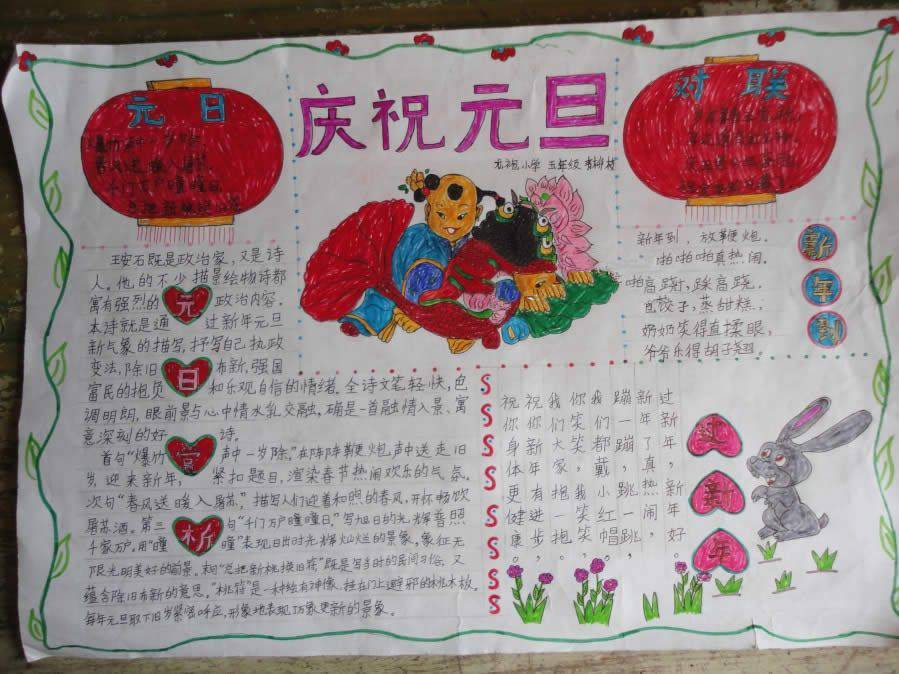 庆祝元旦
尤祝小学 五年级 李树林
元日
爆竹声中一岁除，
春风送暖入屠苏。
千门万户曈曈日，
总把新桃换旧符。
王安石既是政治家，又是诗
人。他的不少描景绘物诗都
寓有强烈的政治内容。
本诗就是通过新年元旦
新气象的描写，抒写自己执政
变法，除旧布新，强国
富民的抱负和乐观自信的情绪。全诗文笔轻快，色
调明朗，眼前景与心中情水乳交融，确是一首融情入景，寓
意深刻的好诗。
首句“爆竹声中一岁除，”在阵阵鞭炮声中送走旧
岁，迎来新年，紧扣题目，渲染春节热闹欢乐的气氛。
次句“春风送暖入屠苏”，描写人们迎着和煦的春风，开怀畅饮
屠苏酒。第三句“千门万户曈曈日，”写旭日的光辉普照
千家万户。用“曈曈”表现日出时光辉灿烂的景象，象征无
限光明美好的前景。末句“总把新桃换旧符”既是写当时的民间习俗，又
蕴含除旧布新的意思。“桃符”是一种绘有神像、挂在门上避邪的桃木板。
每年元旦取下旧
元
日
赏
析
对联
新年到，放鞭炮。
啪啪啪啪真热闹。
高跷，踩高跷，
饺子，蒸甜糕，
奶奶笑得直揉眼，
爷爷乐得胡子翘。
新
年
到
过新年，新年好。
新年了，真热闹，
蹦一蹦，跳一跳。
我们都戴小红帽，
你笑笑，我笑笑，
我们大家抱一抱。
祝你新年有进步，
祝你身体更健康。
过
新
年